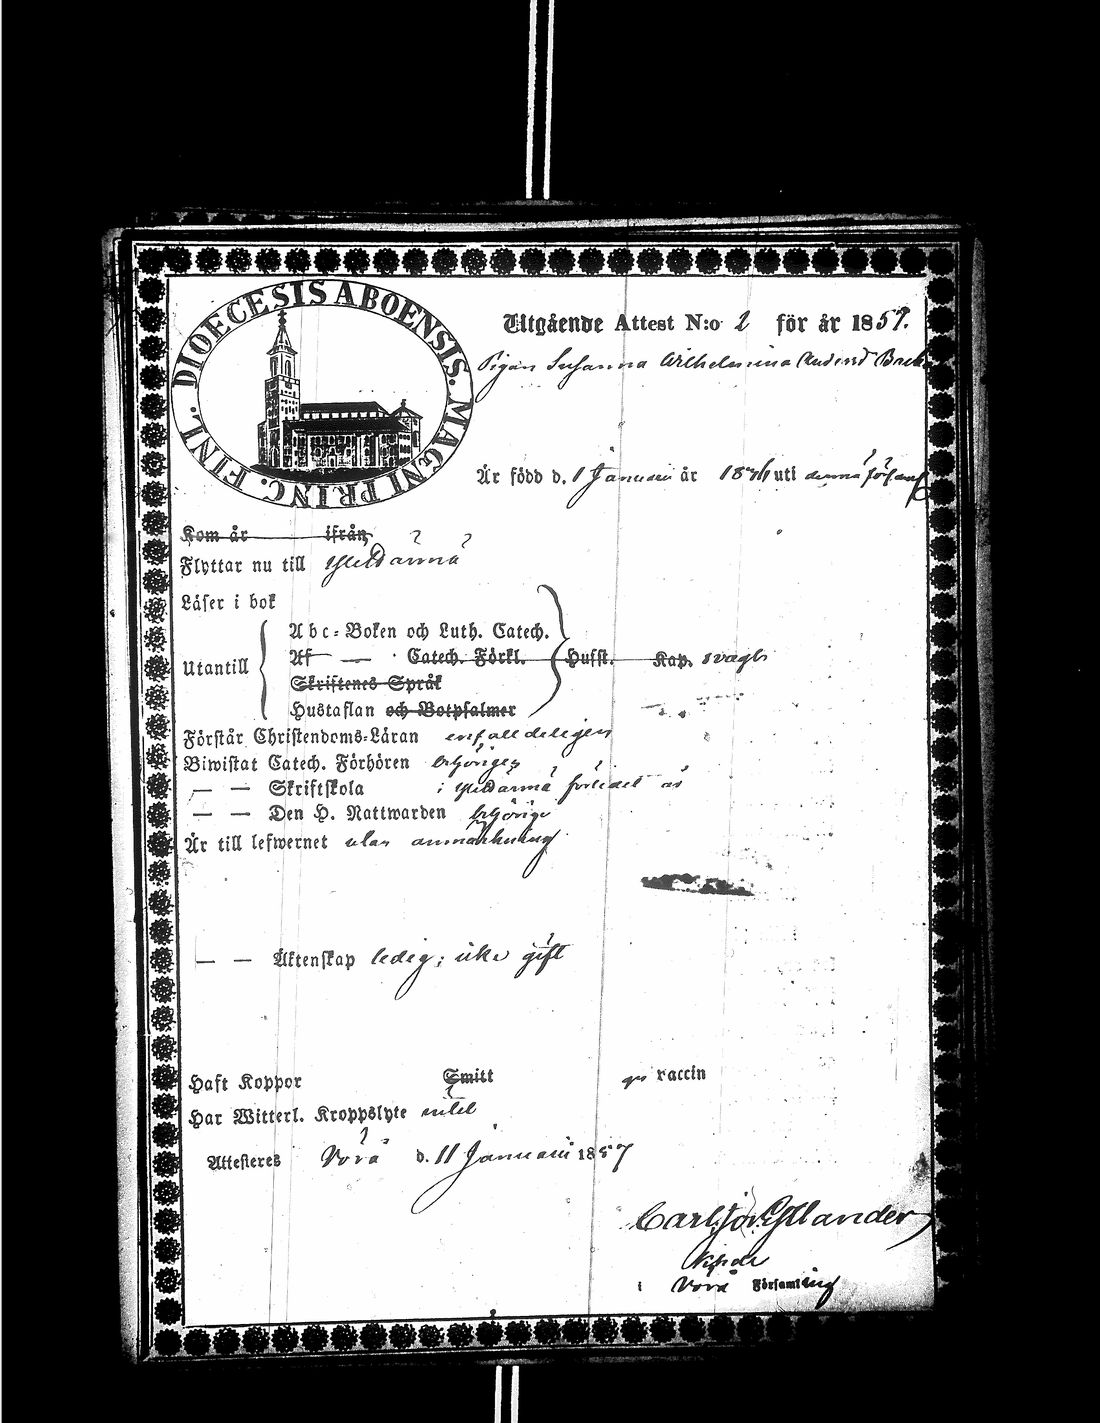 DIOECESIS ABOENSIS. MAGNI PRINC. FINL.
Utgående Attest N:o 2 för år 1857.
Pigan Susanna Wilhelmina Back
Är född d. 1 Januari år uti denna förs
Kom år ifrån
Flyttar nu till Ylihärmä
Läser i bok
Utantill
Abc-Boken och Luth. Catech.
Af — Catech. Förkl. Husst. Kap. svagt
Skriftenes Språk
Hustaflan och Botpsalmer
Förstår Christendoms-Läran enfalldeligen
Biwistat Catech. Förhören behörigen
— — Skriftskola i Ylihärmä förledet år
— — Den H. Nattwarden behörigt
Är till lefwernet utan anmärkning
— — Äktenskap ledig; icke gift
Haft Koppor Smitt vaccin
Har Witterl. Kroppslyte intet
Attesteres Vörå d. 11 Januarii 1857
Carl Joh. Gyllander
i Vörå Församling